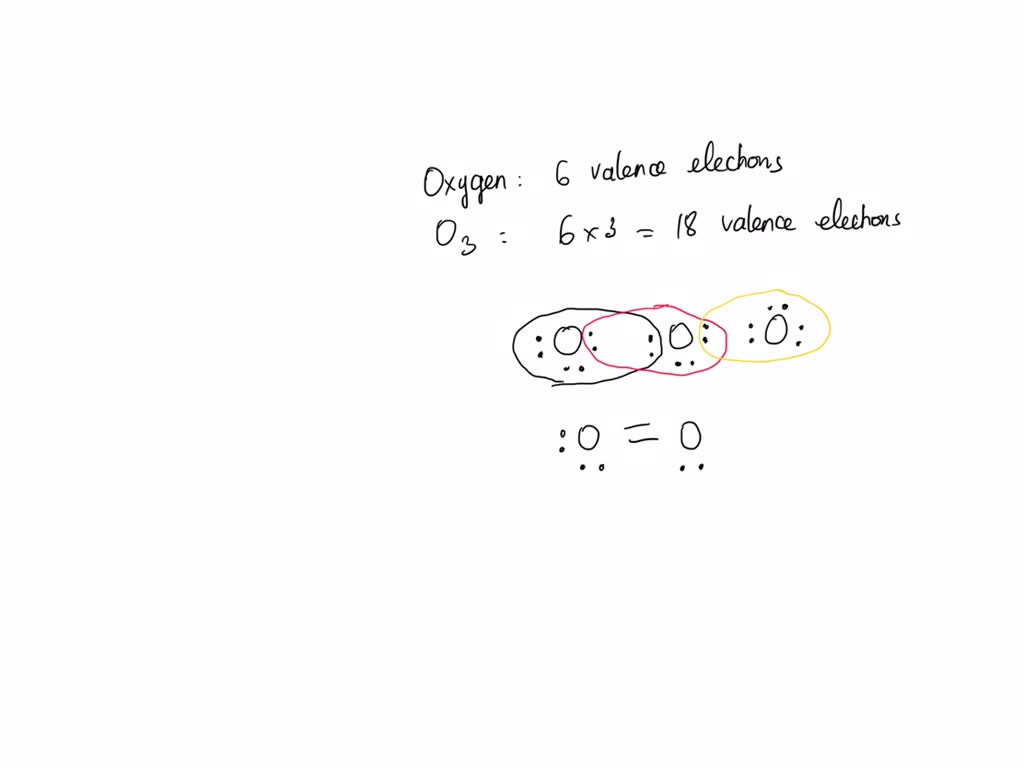 Oxygen: 6 valence elechons
O3 : 6 x 3 = 18 valence elechons
:O: :O: :O:
:O = O